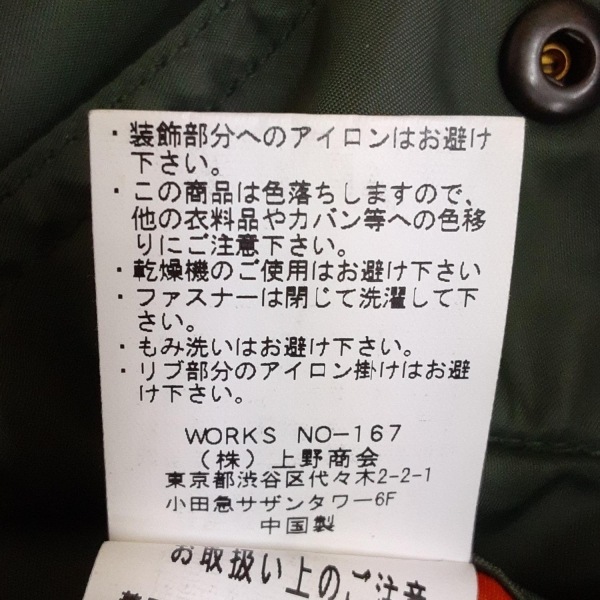 ・装飾部分へのアイロンはお避け
下さい。
・この商品は色落ちしますので、
他の衣料品やカバン等への色移
りにご注意下さい。
・乾燥機のご使用はお避け下さい
・ファスナーは閉じて洗濯して下
さい。
・もみ洗いはお避け下さい。
・リブ部分のアイロン掛けはお避
け下さい。
WORKS NO-167
(株)上野商会
東京都渋谷区代々木2-2-1
小田急サザンタワー6F
中国製
お取扱い上のご注意